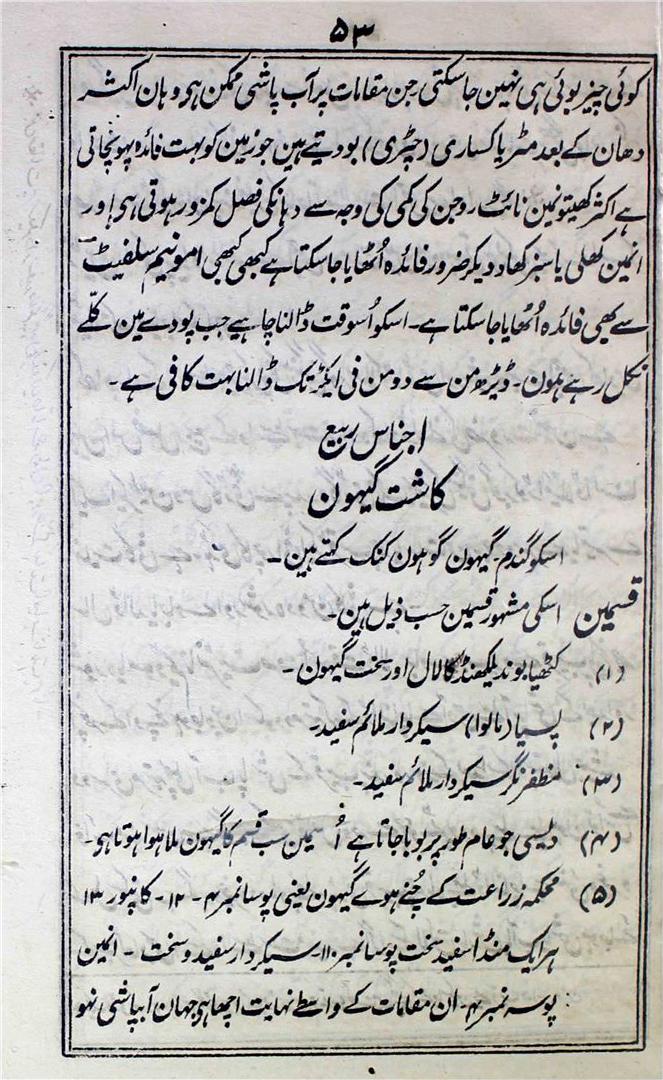 ۵۳
کوئی چیز بوئی ہی نہین جاسکتی جن مقامات پر آب پاشی ممکن ہی وہان اکثر
دھان کے بعد مٹر یا کساری (چٹری) بودتے ہین جو زمین کو بہت فائدہ پہونچاتی
ہے اکثر کھیتونمین نائٹروجن کی کمی کی وجہ سے دہانکی فصل کمزور ہوتی ہی اور
انمین کھلی یا سبز کھاد دیکر ضرور فائدہ اُٹھایا جاسکتا ہے کبھی کبھی امونیم سلفیٹ
سے بھی فائدہ اُٹھایا جاسکتا ہے۔ اسکو اُسوقت ڈالنا چاہیے جب پودے مین کلّے
نکل رہے ہون۔ ڈیڑھ من سے دو من فی ایکڑ تک ڈالنا بہت کافی ہے۔
اجناس ربیع
کاشت گیہون
اسکو گندم۔ گیہون گوہون کنک کہتے ہین۔
قسمین اسکی مشہور قسمین حسب ذیل ہین۔
(۱) کٹھیا بوندیلکھنڈ کا لال اور سخت گیہون۔
(۲) پسیا (مالوا) سیکردار ملائم سفید۔
(۳) مظفر نگر سیکردار ملائم سفید۔
(۴) دیسی جو عام طور پر بویا جاتا ہے اُسمین سب قسم کا گیہون ملا ہوا ہوتا ہی۔
(۵) محکمہ زراعت کے چُنے ہوے گیہون یعنی پوسا نمبر ۴۔ ۱۲۔ کانپور ۱۳
ہر ایک منڈا سفید سخت پوسا نمبر ۱۱۰۔ سیکردار سفید و سخت۔ انمین
پوسہ نمبر ۴۔ ان مقامات کے واسطے نہایت اچھا ہی جہان آبپاشی نہو